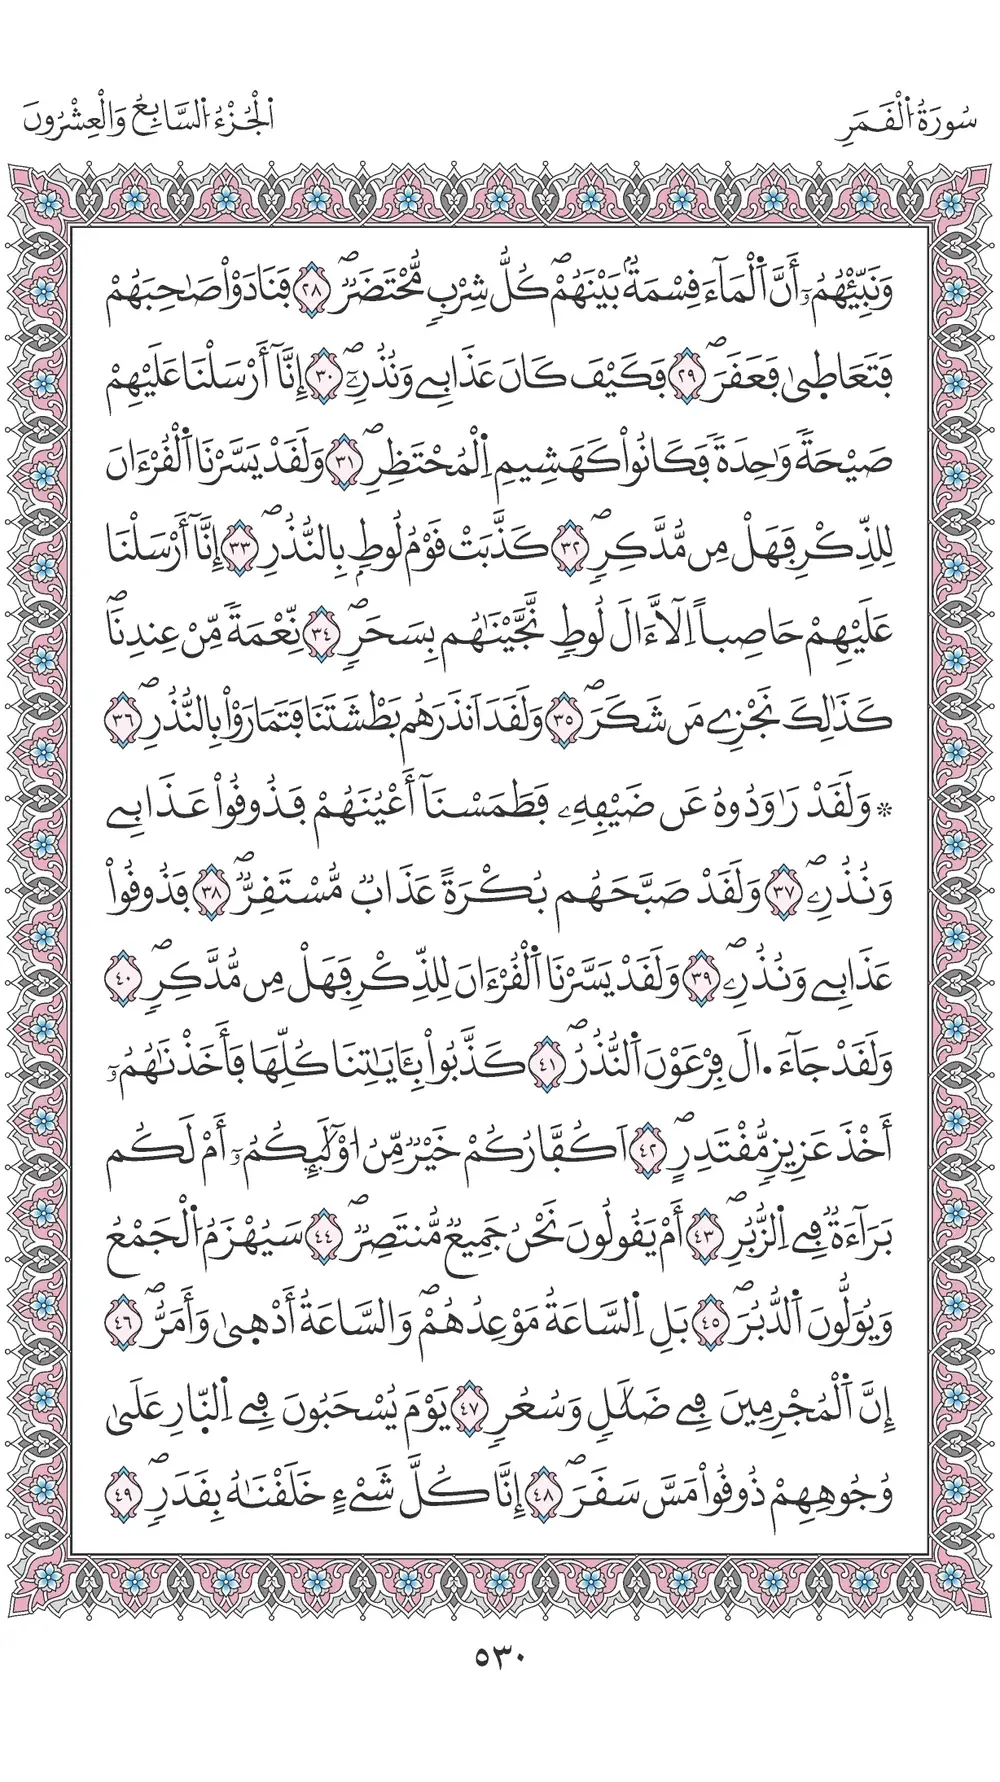 سُورَةُ اُ۬لْقَمَرِ
اَ۬لْجُزْءُ اُ۬لسَّابِعُ وَالْعِشْرُونَ
وَنَبِّئْهُمُۥٓ أَنَّ اَ۬لْمَآءَ قِسْمَةُۢ بَيْنَهُمْۖ كُلُّ شِرْبٖ مُّحْتَضَرٞۖ ٢٨ فَنَادَوْاْ صَٰحِبَهُمْ
فَتَعَاط۪ىٰ فَعَقَرَۖ ٢٩ فَكَيْفَ كَانَ عَذَابِے وَنُذُرِۦٓۖ ٣٠ إِنَّآ أَرْسَلْنَا عَلَيْهِمْ
صَيْحَةٗ وَٰحِدَةٗ فَكَانُواْ كَهَشِيمِ اِ۬لْمُحْتَظِرِۖ ٣١ وَلَقَدْ يَسَّرْنَا اَ۬لْقُرْءَانَ
لِلذِّكْرِ فَهَلْ مِن مُّدَّكِرٖۖ ٣٢ كَذَّبَتْ قَوْمُ لُوطِۢ بِالنُّذُرِۖ ٣٣ إِنَّآ أَرْسَلْنَا
عَلَيْهِمْ حَاصِباً اِلَّآ ءَالَ لُوطٖ نَّجَّيْنَٰهُم بِسَحَرٖۖ ٣٤ نِّعْمَةٗ مِّنْ عِندِنَاۖ
كَذَٰلِكَ نَجْزِے مَن شَكَرَۖ ٣٥ وَلَقَدَ اَنذَرَهُم بَطْشَتَنَا فَتَمَارَوْاْ بِالنُّذُرِۖ ٣٦
۞ وَلَقَدْ رَٰوَدُوهُ عَن ضَيْفِهِۦ فَطَمَسْنَآ أَعْيُنَهُمْ فَذُوقُواْ عَذَابِے
وَنُذُرِۦۖ ٣٧ وَلَقَدْ صَبَّحَهُم بُكْرَةً عَذَابٞ مُّسْتَقِرّٞۖ ٣٨ فَذُوقُواْ
عَذَابِے وَنُذُرِۦۖ ٣٩ وَلَقَدْ يَسَّرْنَا اَ۬لْقُرْءَانَ لِلذِّكْرِ فَهَلْ مِن مُّدَّكِرٖۖ ٤٠
وَلَقَدْ جَآءَ اٰ۬لَ فِرْعَوْنَ اَ۬لنُّذُرُۖ ٤١ كَذَّبُواْ بِـَٔايَٰتِنَا كُلِّهَا فَأَخَذْنَٰهُمُۥٓ
أَخْذَ عَزِيزٖ مُّقْتَدِرٍۖ ٤٢ اَكُفَّارُكُمْ خَيْرٞ مِّنُ ا۟وْلَٰٓئِكُمُۥٓ أَمْ لَكُم
بَرَآءَةٞ فِے اِ۬لزُّبُرِۖ ٤٣ أَمْ يَقُولُونَ نَحْنُ جَمِيعٞ مُّنتَصِرٞۖ ٤٤ سَيُهْزَمُ اُ۬لْجَمْعُ
وَيُوَلُّونَ اَ۬لدُّبُرَۖ ٤٥ بَلِ اِ۬لسَّاعَةُ مَوْعِدُهُمْۖ وَالسَّاعَةُ أَدْه۪ىٰ وَأَمَرُّۖ ٤٦
إِنَّ اَ۬لْمُجْرِمِينَ فِے ضَلَٰلٖ وَسُعُرٖ ٤٧ يَوْمَ يُسْحَبُونَ فِے اِ۬لنّ۪ارِ عَلَىٰ
وُجُوهِهِمْ ذُوقُواْ مَسَّ سَقَرَۖ ٤٨ إِنَّا كُلَّ شَےْءٍ خَلَقْنَٰهُ بِقَدَرٖۖ ٤٩
٥٣٠